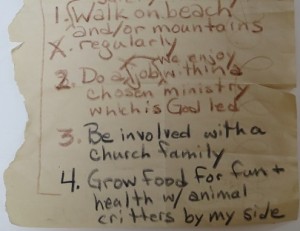 1. Walk on beach
and/or mountains
X. regularly
we enjoy
2. Do a job within a
chosen ministry
which is God led
3. Be involved with a
church family
4. Grow food for fun +
health w/ animal
critters by my side